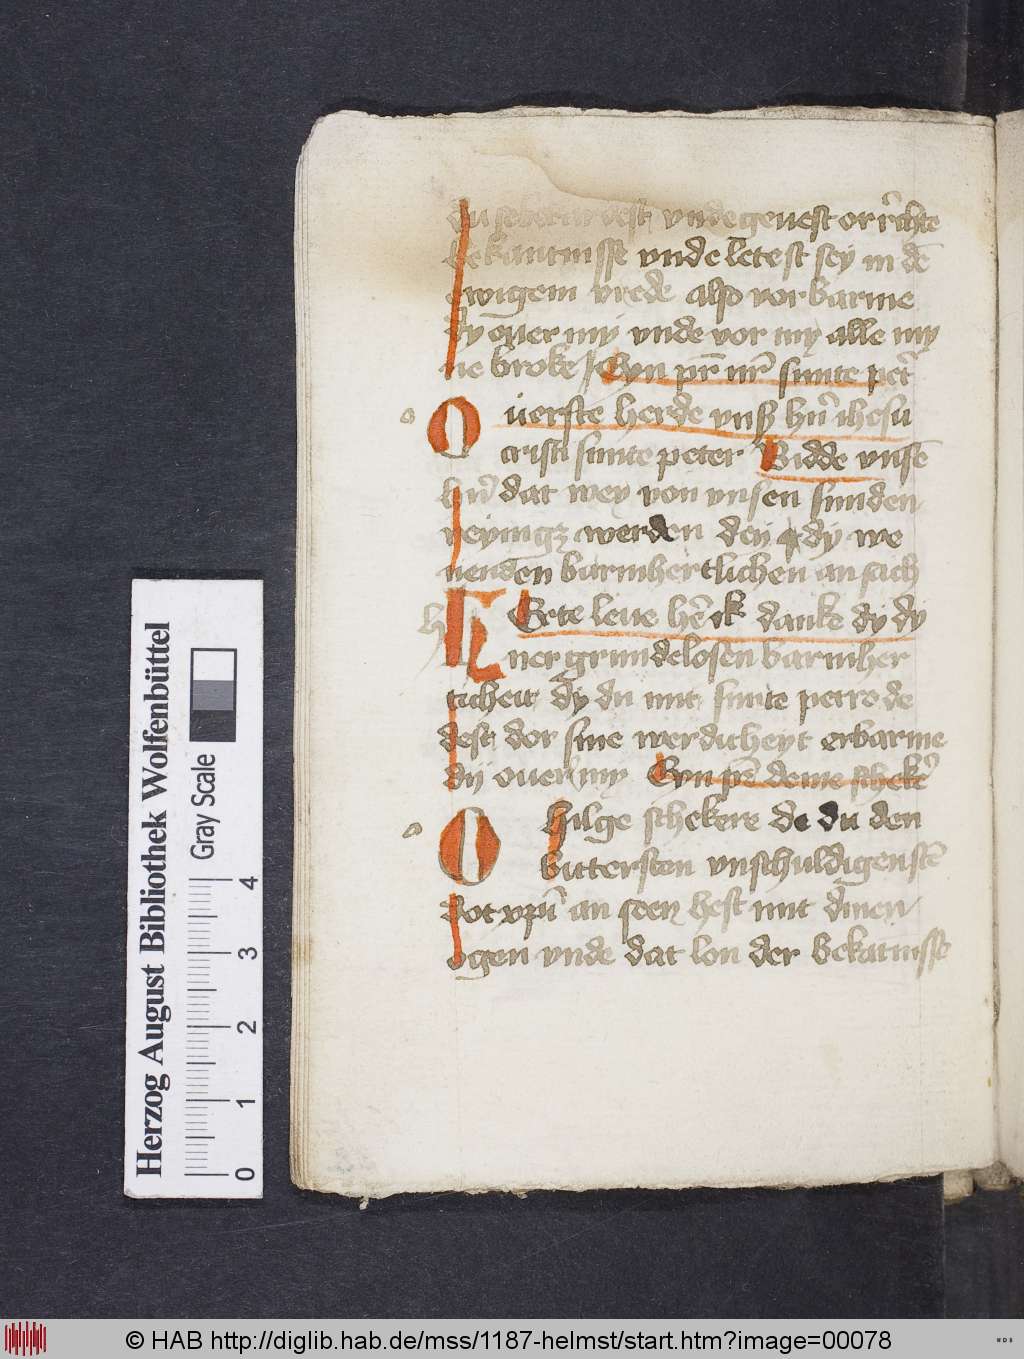 vnde geuest or richte
bekantnisse vnde letest sey in dē
ewigem vrede also vorbarme
dy ouer my vnde vor my alle my
ne broke Eyn pr̄ nr̄ sunte pet̉
O uerste herde vnß hn̄ ihesu
cristi sunte peter Bidde vnsē
hn̄ dat wey von vnsen sunden
reyniget werden dey dy we
nenden barmhertlichen an sach
h Here leue hē ik danke dy dy
ner grundelosen barmher
ticheit dy du mit sunte petro de
dest dor sine werdicheyt erbarme
dy ouer my Eyn pr̄ deme scheker̄
o O hilge schekere de du den
bittersten vnschuldigenstē
dot xpī an seen hest mit dinen
ogen vnde dat lon der bekatnisse
Herzog August Bibliothek Wolfenbüttel
Gray Scale
0 1 2 3 4
© HAB http://diglib.hab.de/mss/1187-helmst/start.htm?image=00078
WDB